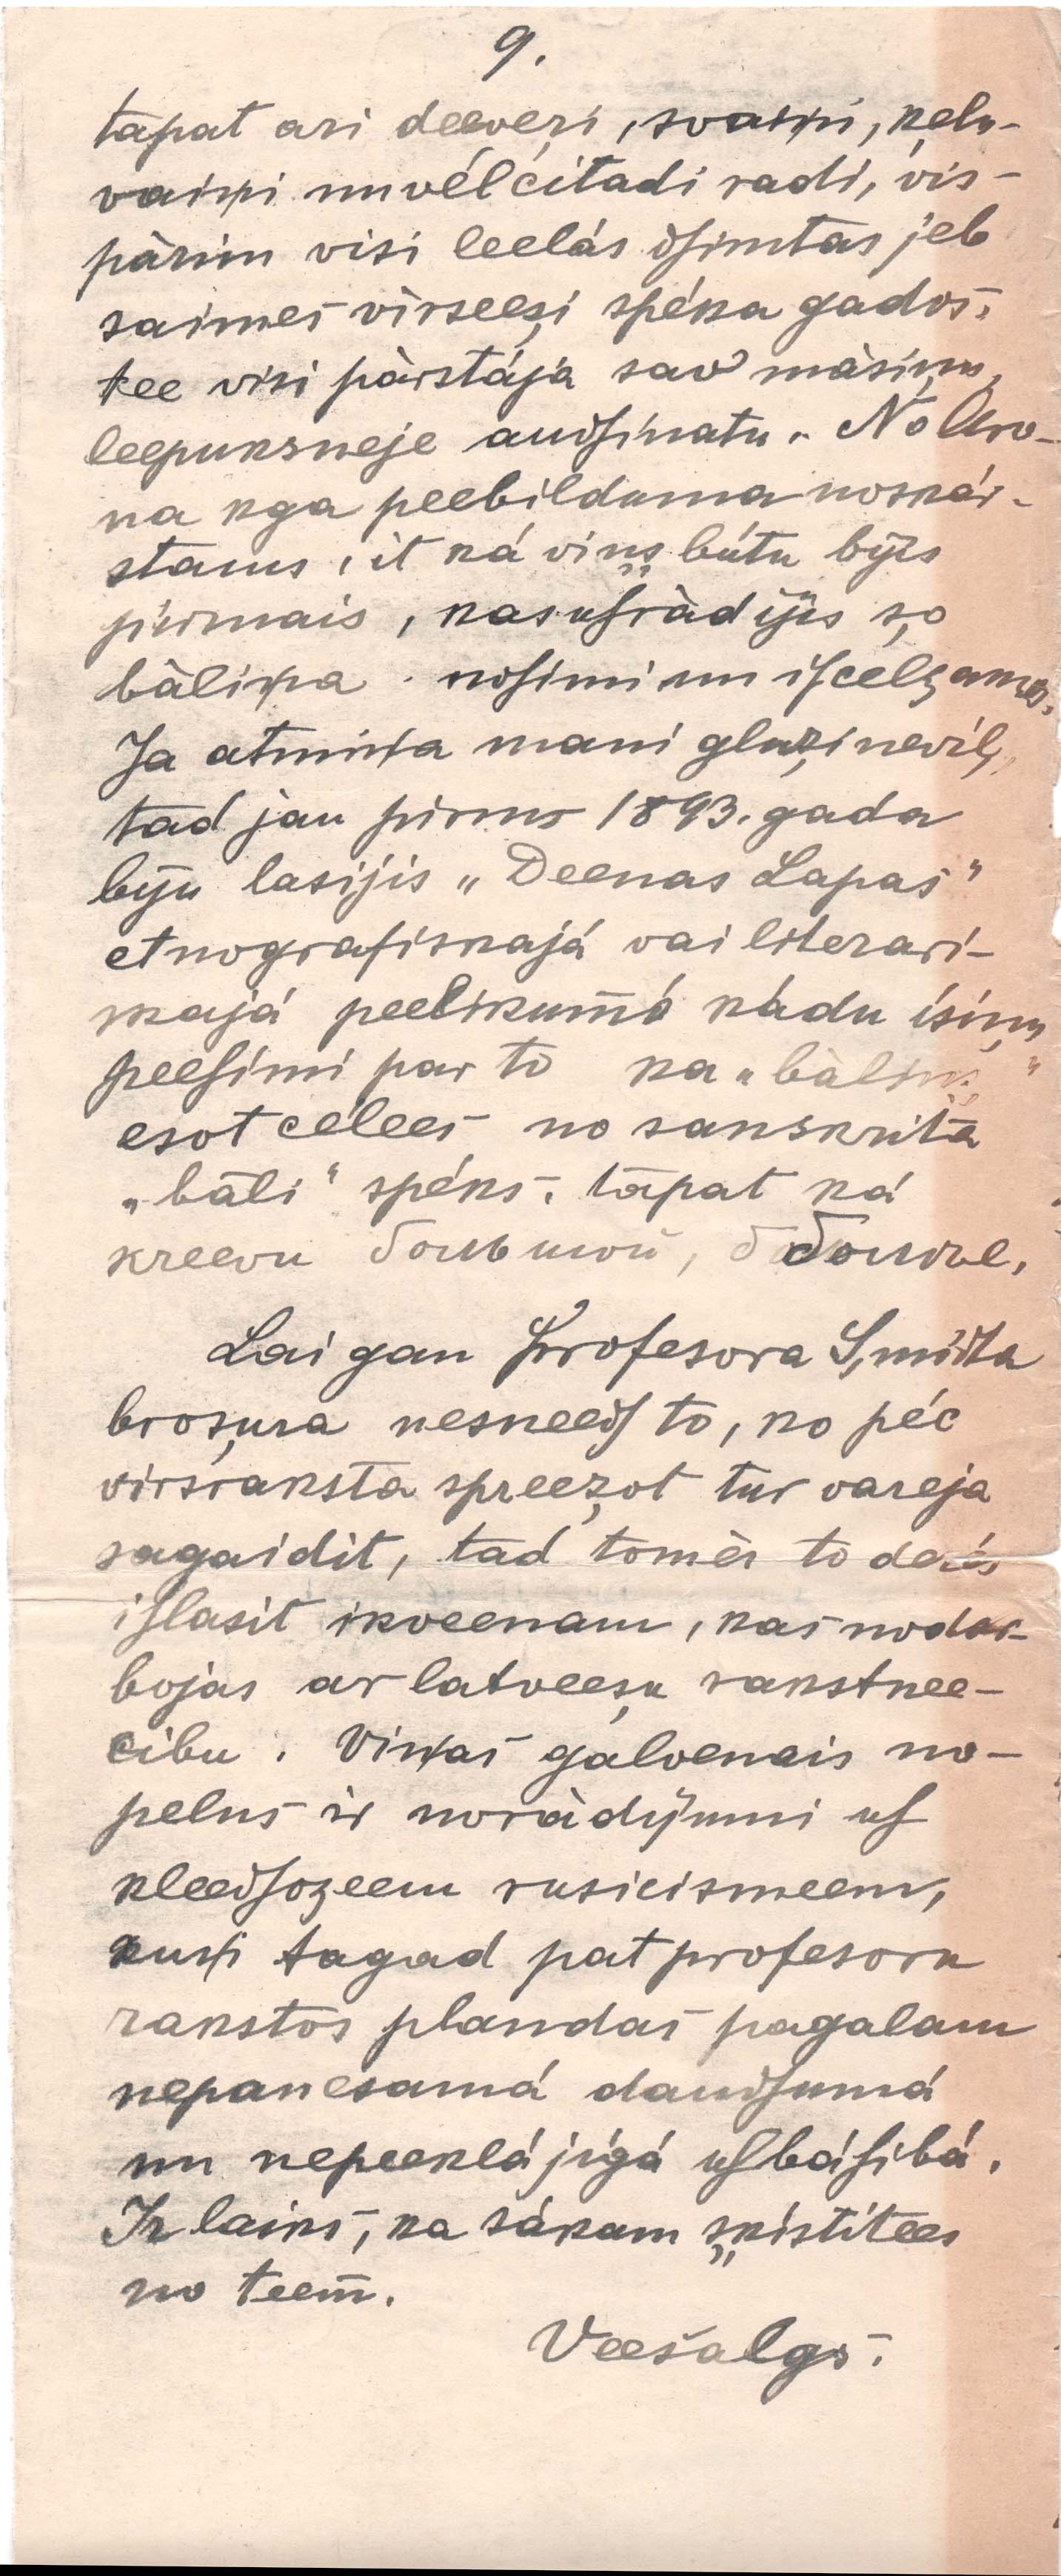 9.
tāpat ari deeveŗi, svaiņi, ķelu-
vaiņi un vēl citadi radi, vis-
pārim visi leelás dſimtas jeb
saimes vīrseeşi spéka gados,
tee visi pārstája sav māsiņu,
leepuksneje audſinatu. No Aro-
na kga peebilduma noskár-
stams, it ká viņş bútu bijis
pirmais, kas uſrādijis şo
bāliņa noſimi un iſcelşanos.
Ja atmiņa mani gluẓi nevilj,
tad jau pirms 1893. gada
biju lasijis „Deenas Lapas"
etnografiskajá vai literari-
skajá peelikumá kádu ísiņu
peeſimi par to ka „bāliņş"
esot cēlees no sanskrita
„bāli" spéks, tāpat ká
kreevu большой, больше,
Lai gan Profesora Şmidta
broşura nesneedſ to, ko péc
virsraksta spreeẓot tur vareja
sagaidit, tad tomēr to derēs
iſlasit ikveenam, kas nodar-
bojas ar latveeşu rakstnee-
cibu. Viņas galvenais no-
pelns ir norādijumi uſ
kleedſoşeem rusicismeem,
kuŗi tagad pat profesoru
rakstos plandas pagalam
nepanesamá daudſumá
un nepeeklájigá uſbáſibá.
Ir laiks, ka sákam şķistitees
no teem.
Veesalgs.